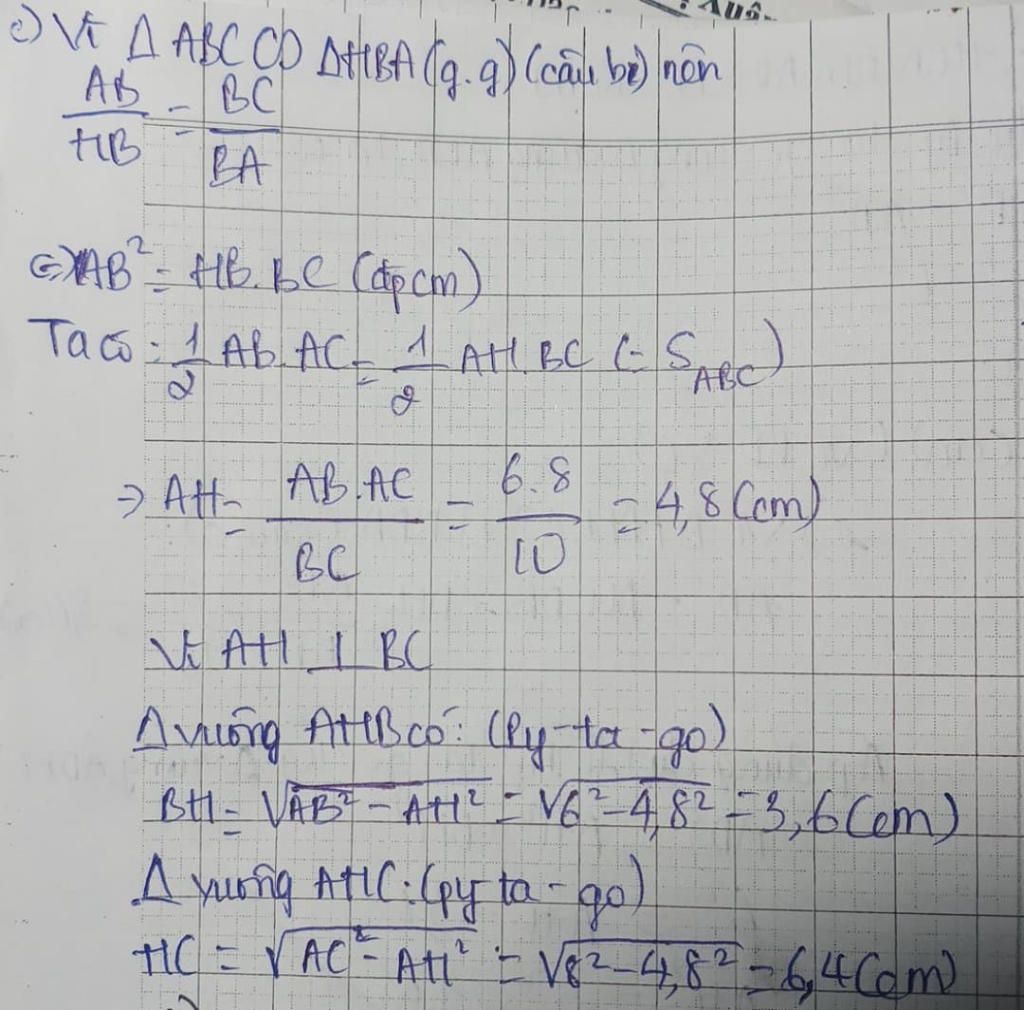 c) Vì Δ ABC ∽ ΔHBA (g.g) (câu b) nên
AB/HB = BC/BA
⇔ AB² = HB.BC (đpcm)
Ta có: 1/2 AB.AC = 1/2 AH.BC (= S_ABC)
⇒ AH = AB.AC/BC = 6.8/10 = 4,8 (cm)
Vì AH ⊥ BC
Δ vuông AHB có: (Py-ta-go)
BH = √(AB² - AH²) = √(6² - 4,8²) = 3,6 (cm)
Δ vuông AHC: (py ta-go)
HC = √(AC² - AH²) = √(8² - 4,8²) = 6,4 (cm)